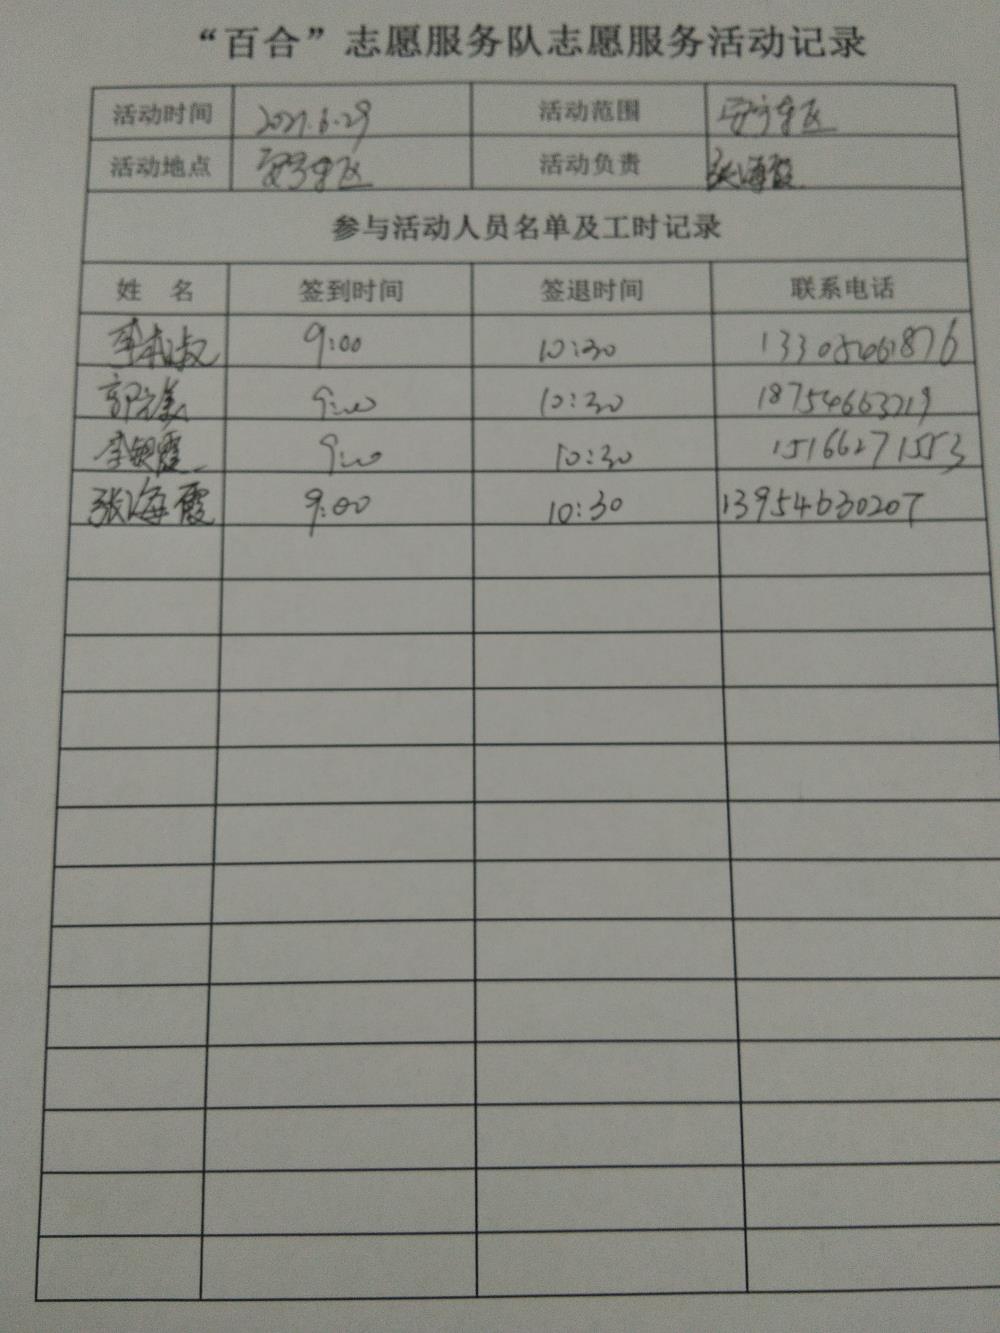 “百合”志愿服务队志愿服务活动记录
活动时间 2021.6.29 活动范围 安宁小区
活动地点 安宁小区 活动负责 张海霞
参与活动人员名单及工时记录
姓 名 签到时间 签退时间 联系电话
9:00 10:30
郭美 9:00 10:30 18754663219
李银霞 9:00 10:30 15166271553
张海霞 9:00 10:30 13954630207